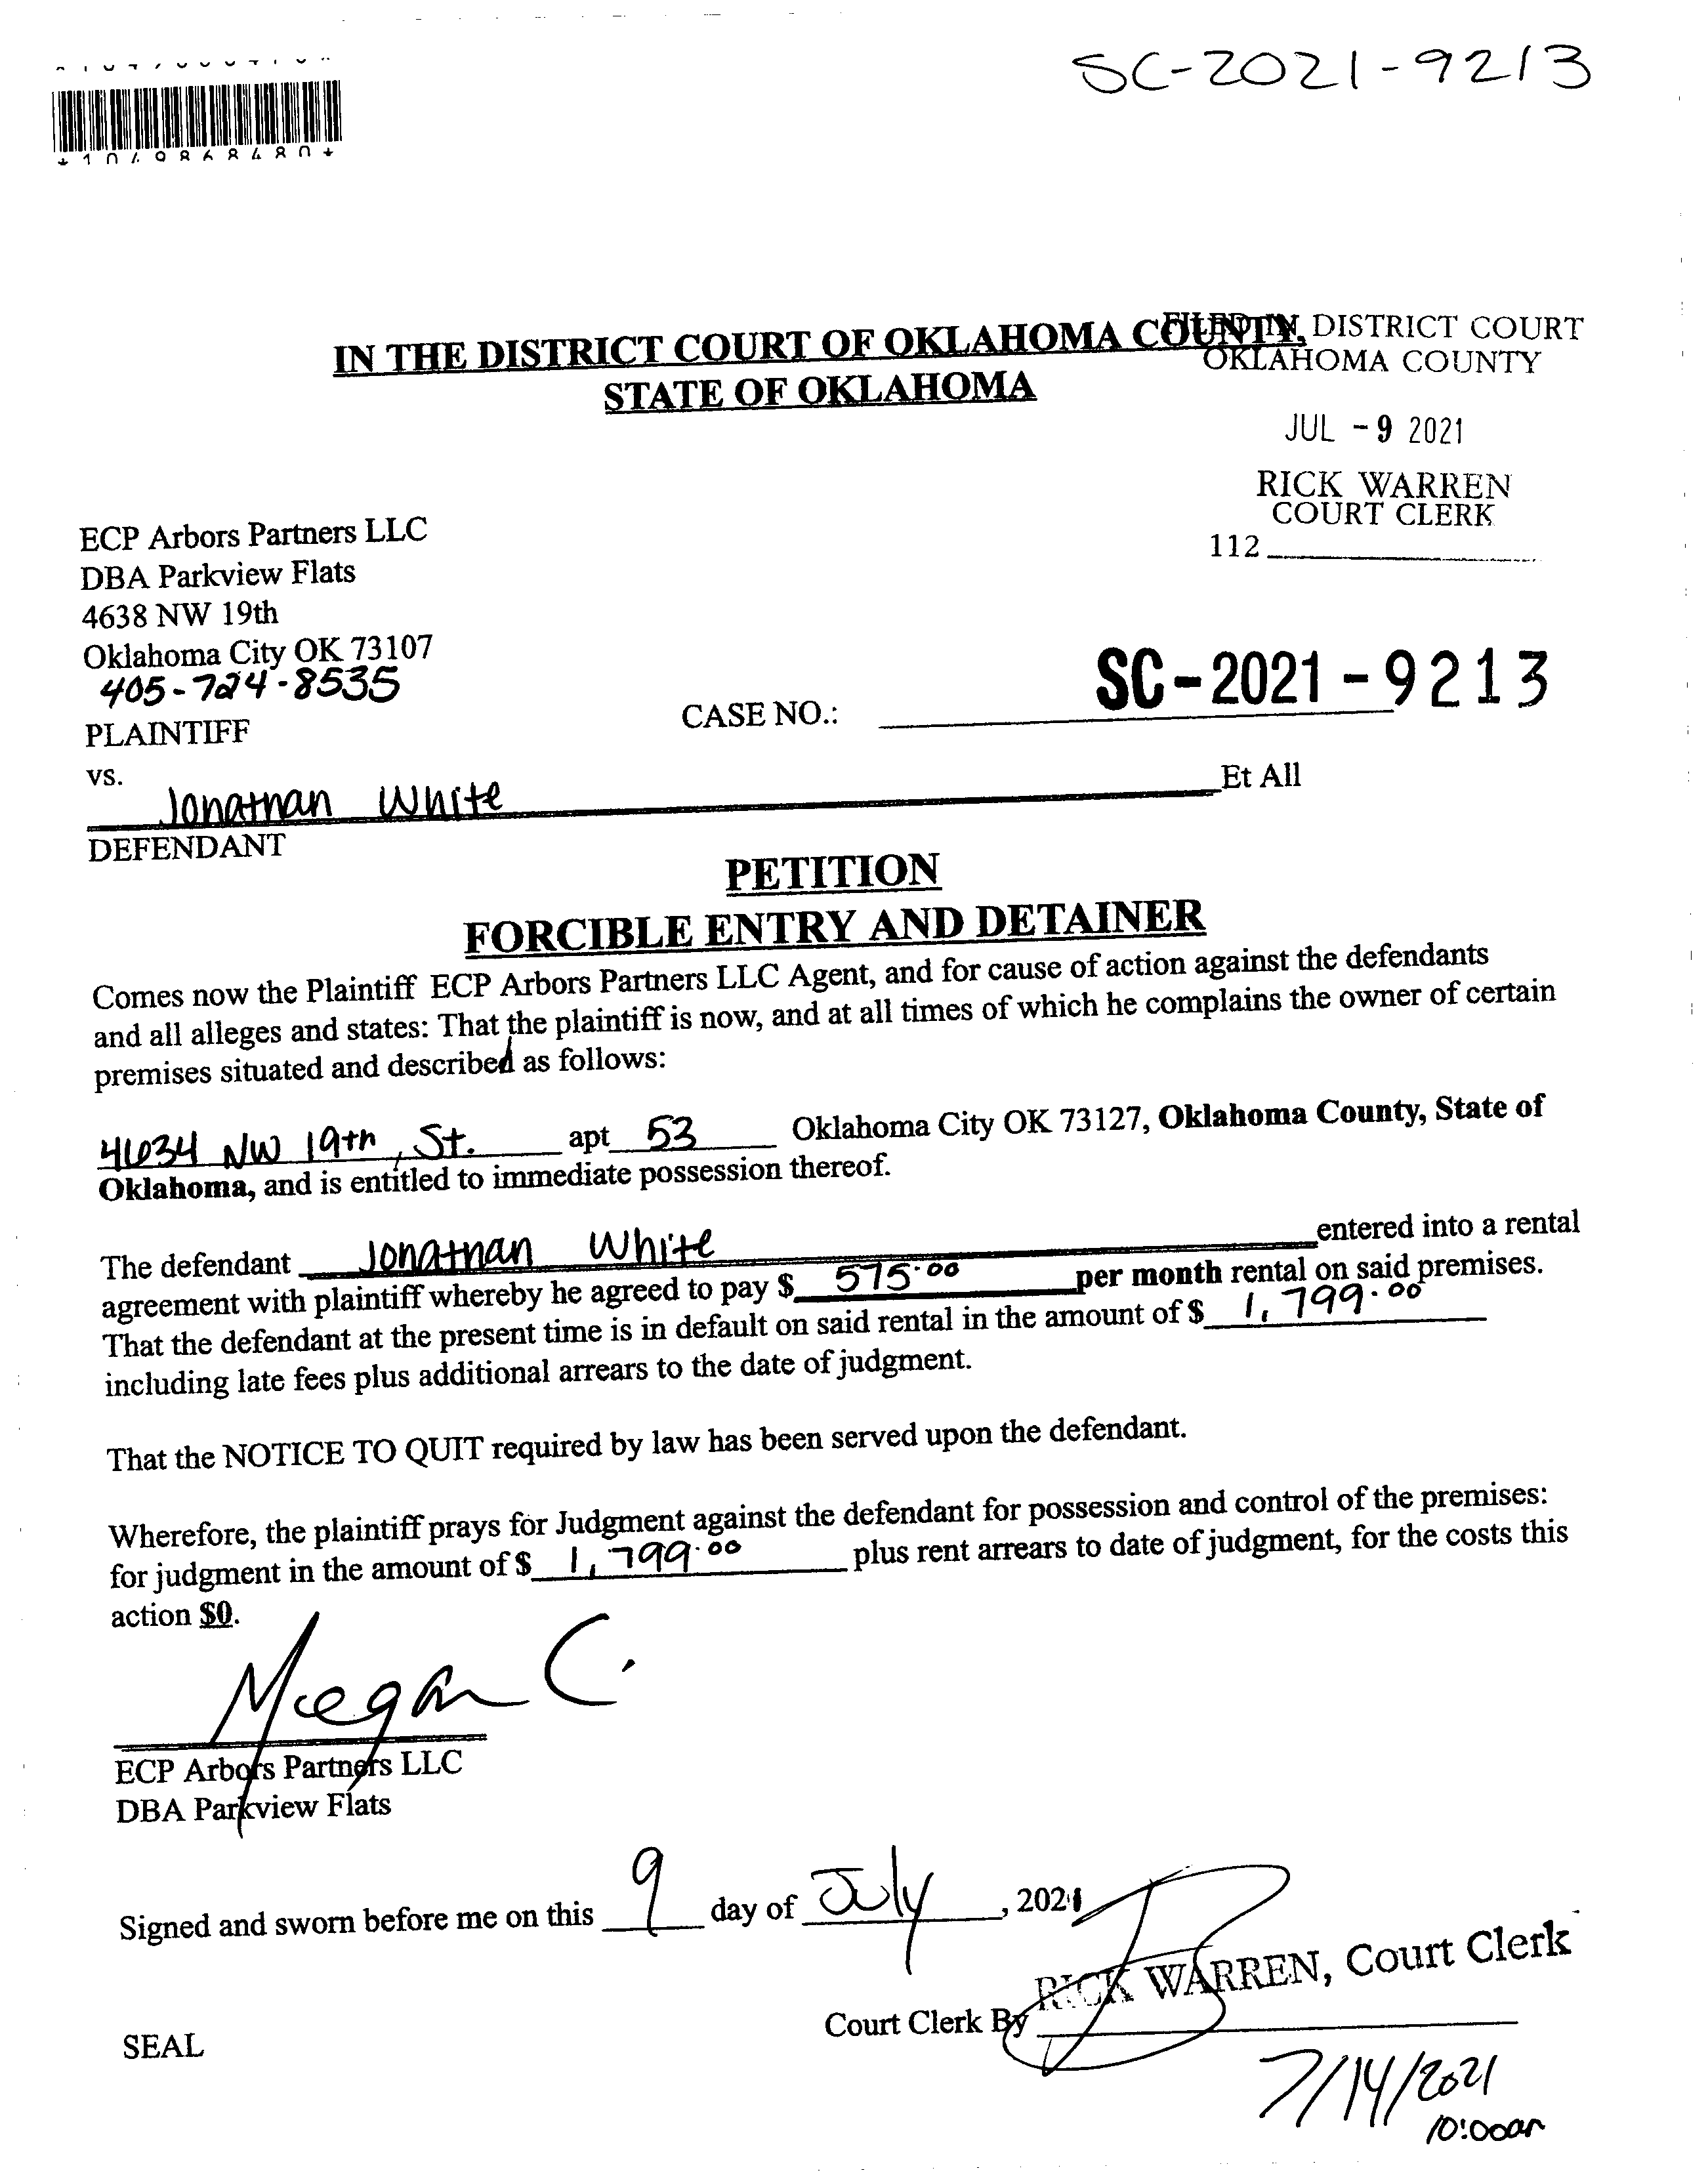 SC-2021-9213
*1049868480*
IN THE DISTRICT COURT OF OKLAHOMA COUNTY,
STATE OF OKLAHOMA
FILED IN DISTRICT COURT
OKLAHOMA COUNTY
JUL - 9 2021
RICK WARREN
COURT CLERK
112
ECP Arbors Partners LLC
DBA Parkview Flats
4638 NW 19th
Oklahoma City OK 73107
405-724-8535
PLAINTIFF
CASE NO.: SC-2021-9213
vs.
Jonathan White Et All
DEFENDANT
PETITION
FORCIBLE ENTRY AND DETAINER
Comes now the Plaintiff ECP Arbors Partners LLC Agent, and for cause of action against the defendants
and all alleges and states: That the plaintiff is now, and at all times of which he complains the owner of certain
premises situated and described as follows:
4634 NW 19th, St. apt 53 Oklahoma City OK 73127, Oklahoma County, State of
Oklahoma, and is entitled to immediate possession thereof.
The defendant Jonathan White entered into a rental
agreement with plaintiff whereby he agreed to pay $ 575.00 per month rental on said premises.
That the defendant at the present time is in default on said rental in the amount of $ 1,799.00
including late fees plus additional arrears to the date of judgment.
That the NOTICE TO QUIT required by law has been served upon the defendant.
Wherefore, the plaintiff prays for Judgment against the defendant for possession and control of the premises:
for judgment in the amount of $ 1,799.00 plus rent arrears to date of judgment, for the costs this
action $0.
Meegan C.
ECP Arbors Partners LLC
DBA Parkview Flats
Signed and sworn before me on this 9 day of July, 2021
RICK WARREN, Court Clerk
Court Clerk By
SEAL
7/14/2021
10:00am